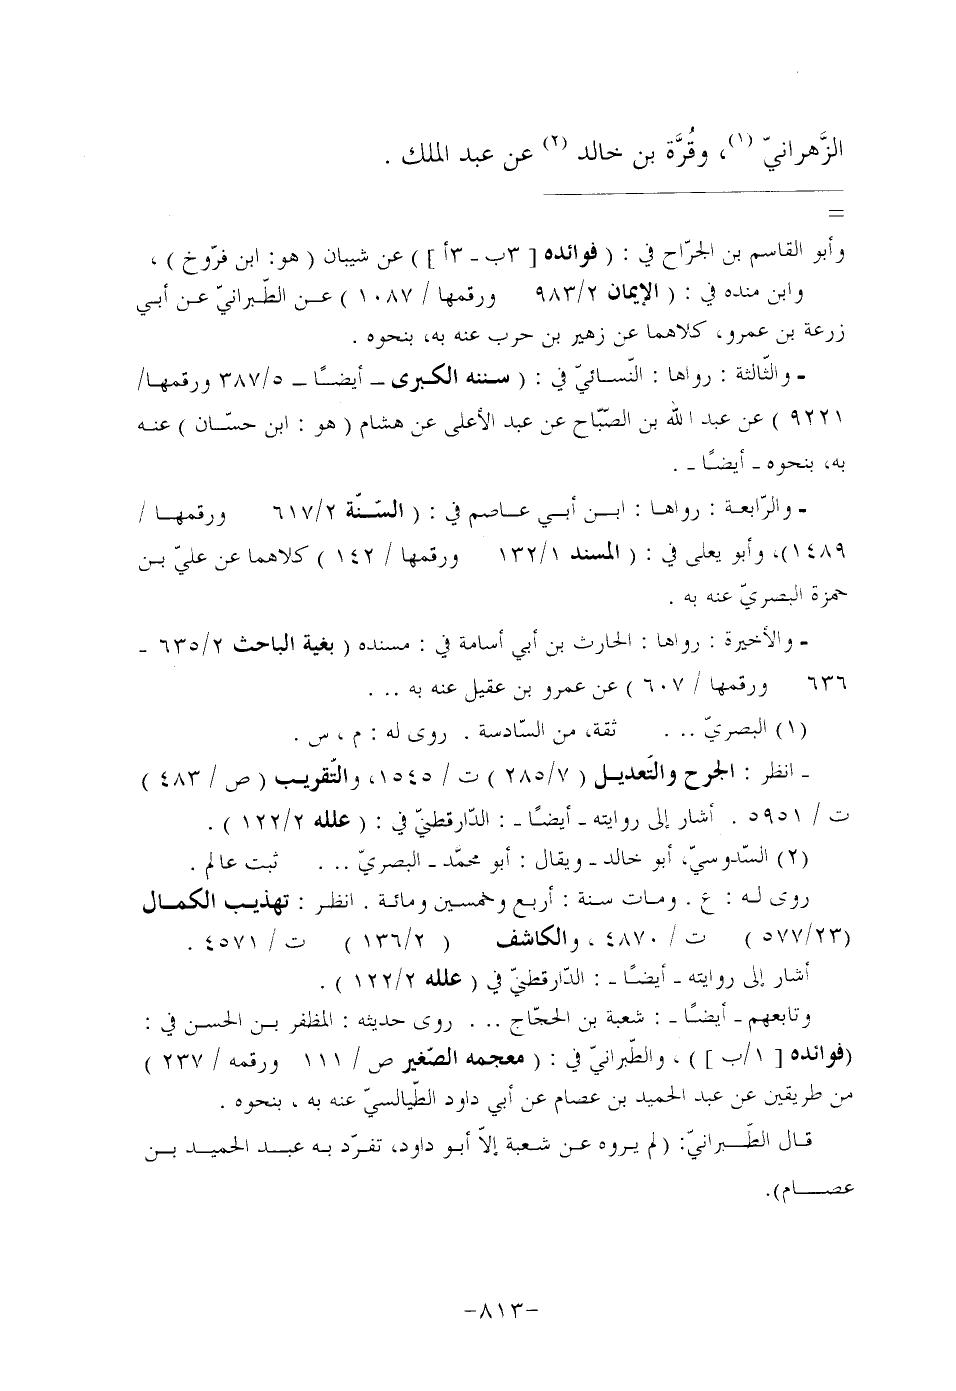 الزَّهرانيّ (١)، وقُرَّة بن خالد (٢) عن عبد الملك .
=
وأبو القاسم بن الجرّاح في : ( فوائده [ ٣ب ـ ٣أ ] ) عن شيبان ( هو: ابن فرّوخ ) ،
وابن منده في : ( الإيمان ٩٨٣/٢ ورقمها / ١٠٨٧ ) عـن الطّبرانيّ عـن أبي
زرعة بن عمرو، كلاهما عن زهير بن حرب عنه به، بنحوه .
ـ والثّالثة : رواها : النّسـائيّ في : ( سـننه الكـبرى ـ أيضًـا ـ ٣٨٧/٥ ورقمهـا/
٩٢٢١ ) عن عبد الله بن الصّبّاح عن عبد الأعلى عن هشام ( هو : ابن حسّـان ) عنـه
به، بنحوه ـ أيضًـا ـ .
ـ والرّابعـة : رواهـا : ابـن أبـي عـاصم في : ( السّـنّة ٦١٧/٢ ورقمهـا /
١٤٨٩)، وأبو يعلى في : ( المسند ١٣٢/١ ورقمها / ١٤٢ ) كلاهما عن عليّ بـن
حمزة البصريّ عنه به .
ـ والأخيرة : رواها : الحارث بن أبي أسامة في : مسنده ( بغية الباحث ٦٣٥/٢ ـ
٦٣٦ ورقمها / ٦٠٧ ) عن عمرو بن عقيل عنه به .. .
(١) البصريّ .. . ثقة، من السّادسة . روى له : م ، س .
ـ انظر : الجرح والتّعديـل ( ٢٨٥/٧ ) ت / ١٥٤٥، والتّقريـب ( ص / ٤٨٣ )
ت / ٥٩٥١ . أشار إلى روايته ـ أيضًـا ـ : الدّارقطنيّ في : ( علله ١٢٢/٢ ) .
(٢) السّدوسيّ، أبو خالد ـ ويقال : أبو محمّد ـ البصريّ .. . ثبت عالم .
روى لـه : ع . ومـات سـنة : أربع وخمسـين ومائـة . انظـر : تهذيـب الكمـال
(٥٧٧/٢٣) ت / ٤٨٧٠ ، والكاشف ( ١٣٦/٢ ) ت / ٤٥٧١ .
أشار إلى روايته ـ أيضًـا ـ : الدّارقطنيّ في ( علله ١٢٢/٢ ) .
وتابعهم ـ أيضًـا ـ : شعبة بن الحجّاج .. . روى حديثه : المظفر بـن الحسـن في :
(فوائده [ ١/ب ] ) ، والطّبرانيّ في : ( معجمه الصّغير ص / ١١١ ورقمه / ٢٣٧ )
من طريقين عن عبد الحميد بن عصام عن أبي داود الطّيالسيّ عنه به ، بنحوه .
قـال الطّـبرانيّ: ( لم يـروه عـن شـعبة إلاّ أبـو داود، تفـرّد بـه عبـد الحميـد بـن
عصـــام).
-٨١٣-